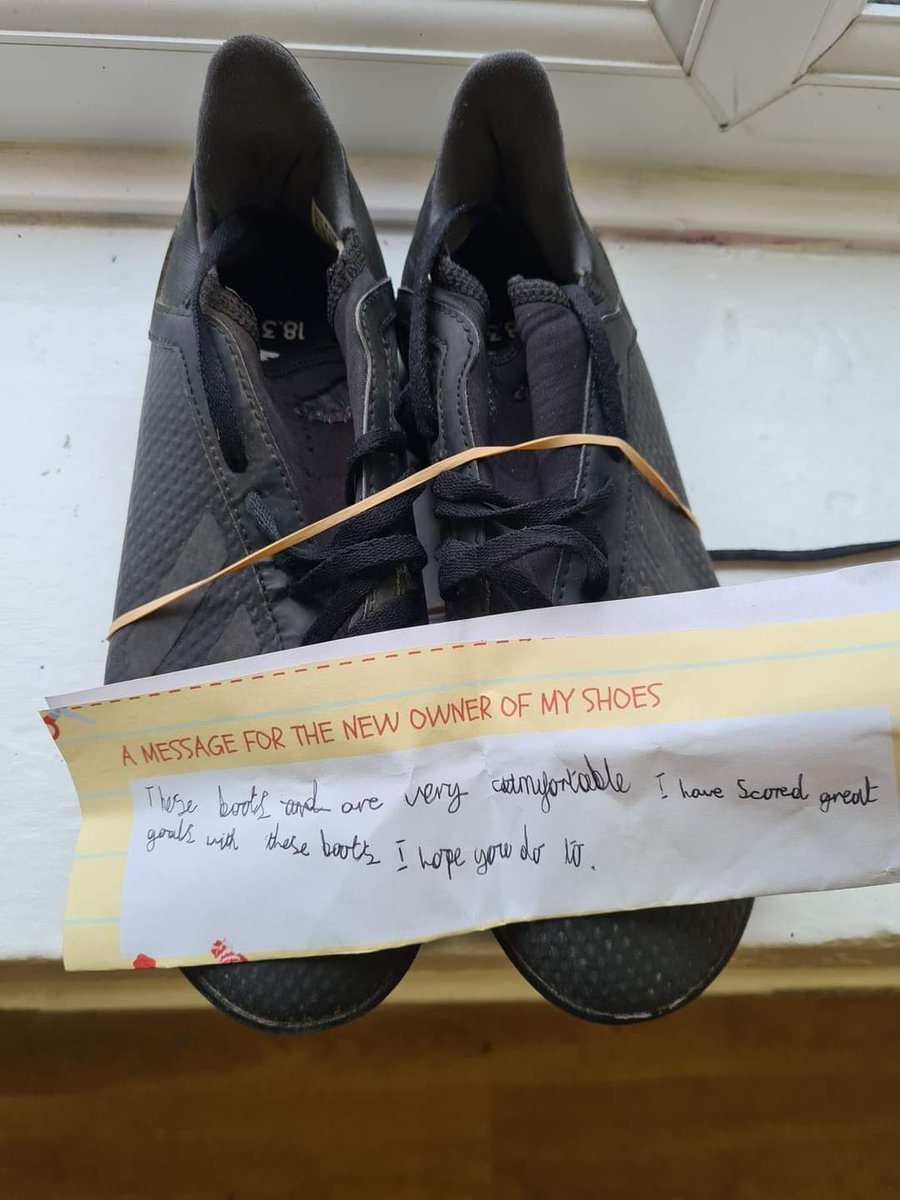 18.3
A MESSAGE FOR THE NEW OWNER OF MY SHOES
These boots and are very comfortable I have Scored great
goals with these boots I hope you do to.